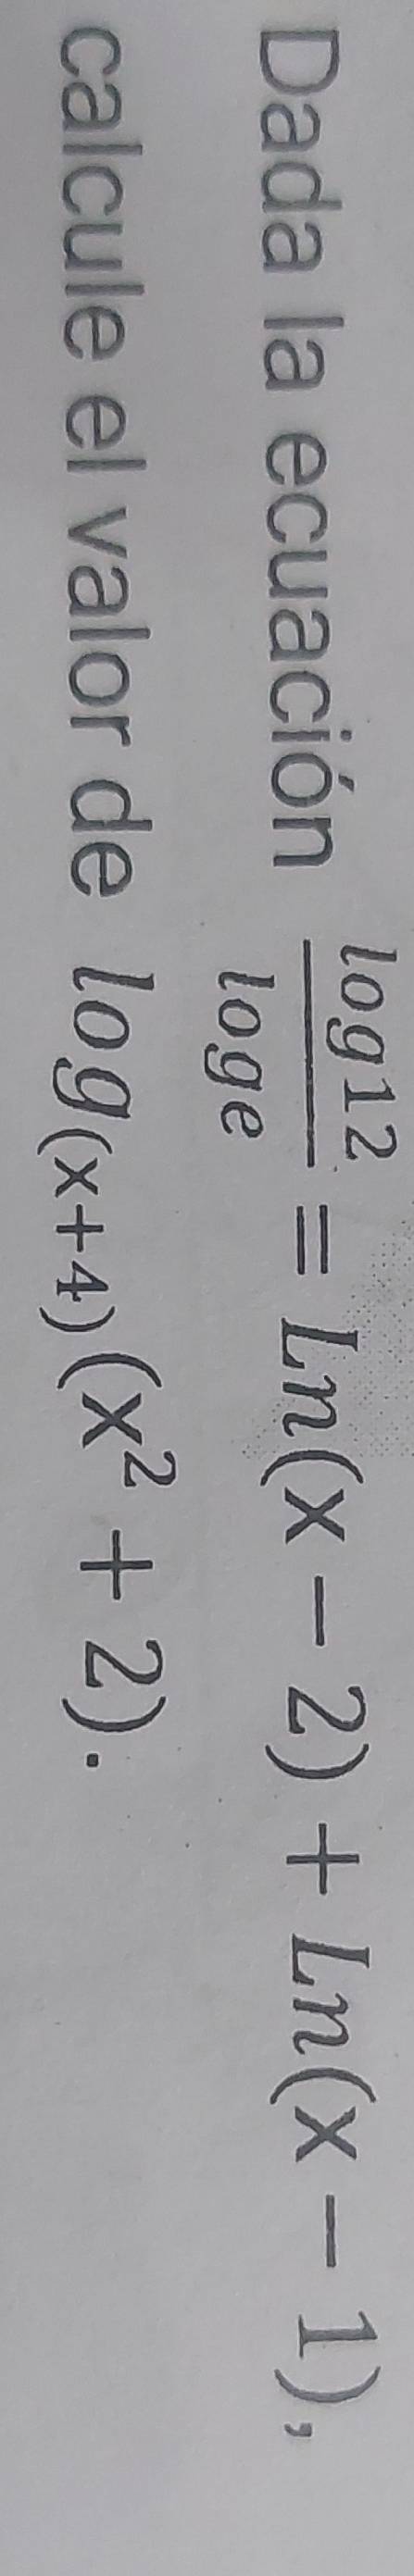 Dada la ecuación \frac{log12}{loge} = Ln(x − 2) + Ln(x − 1),
calcule el valor de log_{(x+4)}(x² + 2).